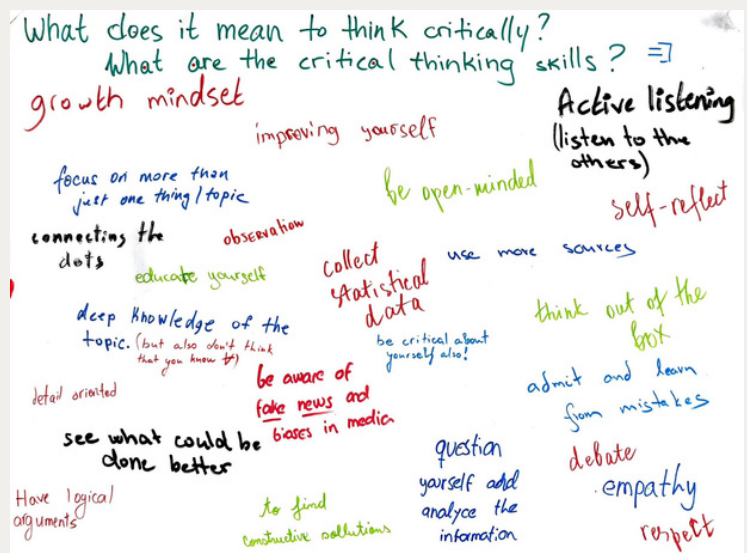 What does it mean to think critically?
What are the critical thinking skills?
growth mindset
Active listening
(listen to the
others)
improving yourself
focus on more than
just one thing/topic
be open-minded
self-reflect
connecting the
dots
observation
educate yourself
collect
statistical
data
use more sources
deep knowledge of the
topic. (but also don't think
that you know it)
be critical about
yourself also!
think out of the
box
detail oriented
be aware of
fake news and
biases in media
admit and learn
from mistakes
see what could be
done better
question
yourself and
analyce the
information
debate
empathy
respect
Have logical
arguments
to find
constructive sollutions